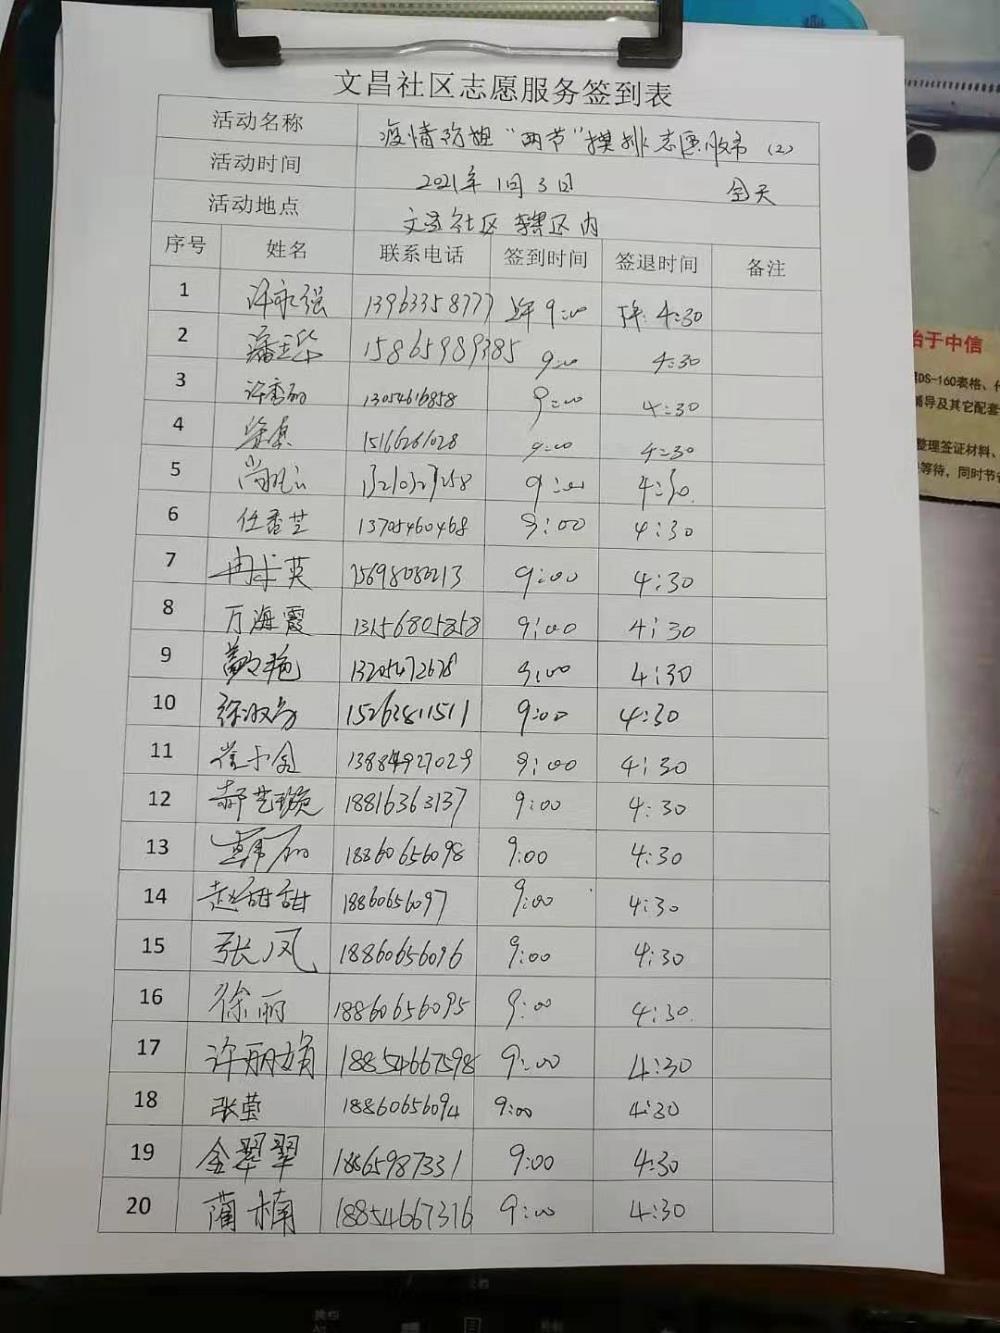 文昌社区志愿服务签到表
活动名称 疫情防疫"两节"摸排志愿服务 (2)
活动时间 2021年1月3日 全天
活动地点 文昌社区辖区内
序号 姓名 联系电话 签到时间 签退时间 备注
1 许永强 13963358777 上午 9:00 下午: 4:30
2 15865989385 9:00 4:30
3 许秀丽 13054616858 9:00 4:30
4 15166261028 9:00 4:30
5 13210327258 9:00 4:30
6 任香芝 13705460468 9:00 4:30
7 15698080213 9:00 4:30
8 万海霞 13156805858 9:00 4:30
9 13205472678 9:00 4:30
10 徐淑芬 15263811511 9:00 4:30
11 崔小金 13884927029 9:00 4:30
12 郝艺璇 18816363137 9:00 4:30
13 韩丽 18860656098 9:00 4:30
14 赵甜甜 18860656097 9:00 4:30
15 张凤 18860656096 9:00 4:30
16 徐丽 18860656095 9:00 4:30
17 许丽娟 18854667598 9:00 4:30
18 张莹 18860656094 9:00 4:30
19 金翠翠 1865987331 9:00 4:30
20 蔺楠 18854667316 9:00 4:30
始于中信
DS-160表格、
辅导及其它配套
整理签证材料、
等待,同时节